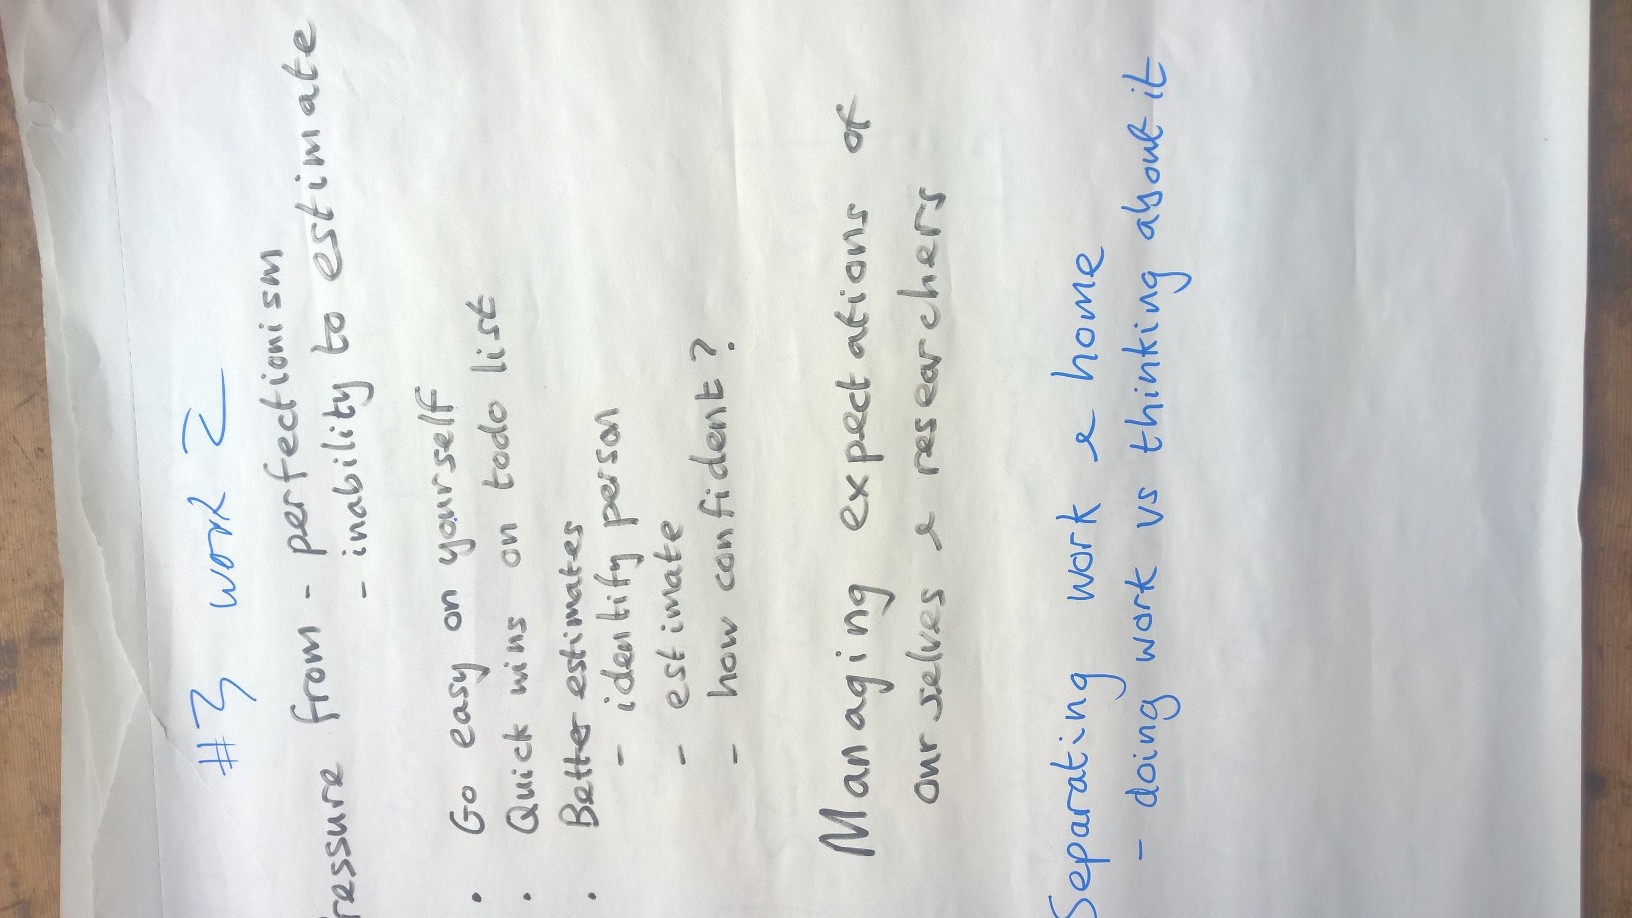 #3 work 2
ressure from - perfectionism
- inability to estimate
. Go easy on yourself
. Quick wins on todo list
. Better estimates
- identify person
- estimate
- how confident?
Managing expectations of
ourselves & researchers
Separating work & home
- doing work vs thinking about it